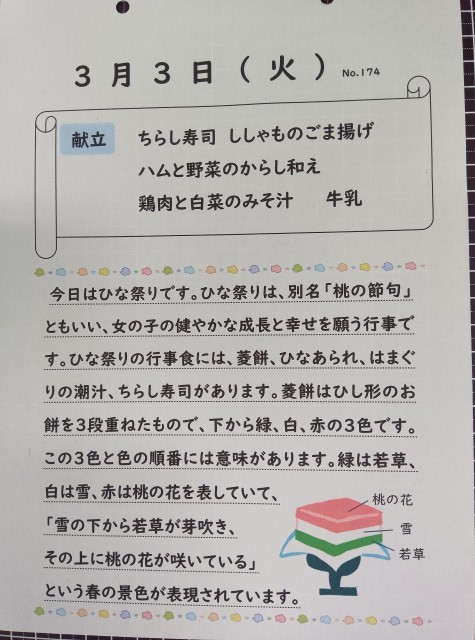 3月3日(火) No.174
献立 ちらし寿司 ししゃものごま揚げ
ハムと野菜のからし和え
鶏肉と白菜のみそ汁 牛乳
今日はひな祭りです。ひな祭りは、別名「桃の節句」
ともいい、女の子の健やかな成長と幸せを願う行事で
す。ひな祭りの行事食には、菱餅、ひなあられ、はまぐ
りの潮汁、ちらし寿司があります。菱餅はひし形のお
餅を3段重ねたもので、下から緑、白、赤の3色です。
この3色と色の順番には意味があります。緑は若草、
白は雪、赤は桃の花を表していて、
「雪の下から若草が芽吹き、
その上に桃の花が咲いている」
という春の景色が表現されています。
桃の花
雪
若草